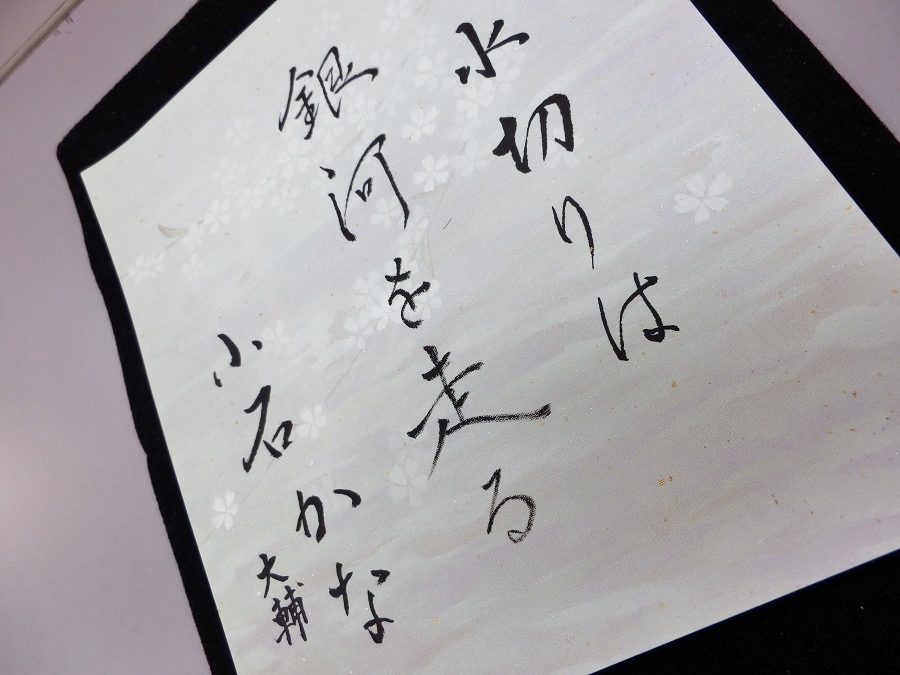 水切りは
銀河を走る
小石かな
大輔